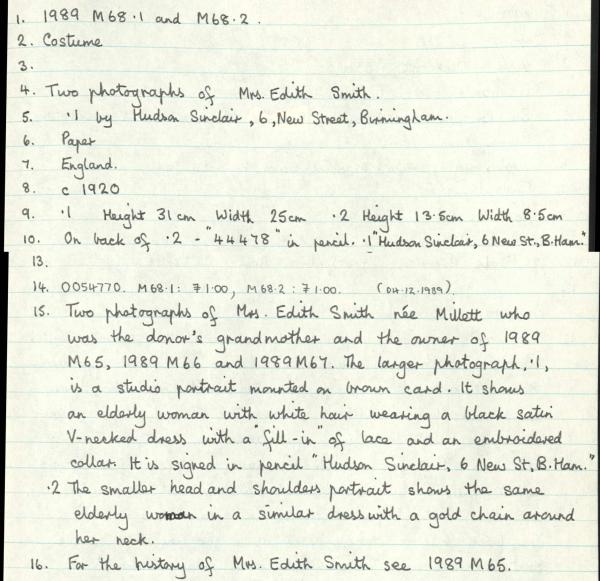 1. 1989 M68.1 and M68.2.
2. Costume
3.
4. Two photographs of Mrs. Edith Smith.
5. .1 by Hudson Sinclair, 6, New Street, Birmingham.
6. Paper
7. England.
8. c 1920
9. .1 Height 31cm Width 25cm .2 Height 13.5cm Width 8.5cm
10. On back of .2 - "44478" in pencil. .1 "Hudson Sinclair, 6 New St, B.Ham."
13.
14. 0054770. M68.1: 71.00, M68.2: 71.00. (04.12.1989)
15. Two photographs of Mrs. Edith Smith née Millett who
was the donor's grandmother and the owner of 1989
M65, 1989 M66 and 1989 M67. The larger photograph, .1,
is a studio portrait mounted on brown card. It shows
an elderly woman with white hair wearing a black satin
V-necked dress with a "fill-in" of lace and an embroidered
collar. It is signed in pencil "Hudson Sinclair, 6 New St, B.Ham."
.2 The smaller head and shoulders portrait shows the same
elderly woman in a similar dress with a gold chain around
her neck.
16. For the history of Mrs. Edith Smith see 1989 M65.